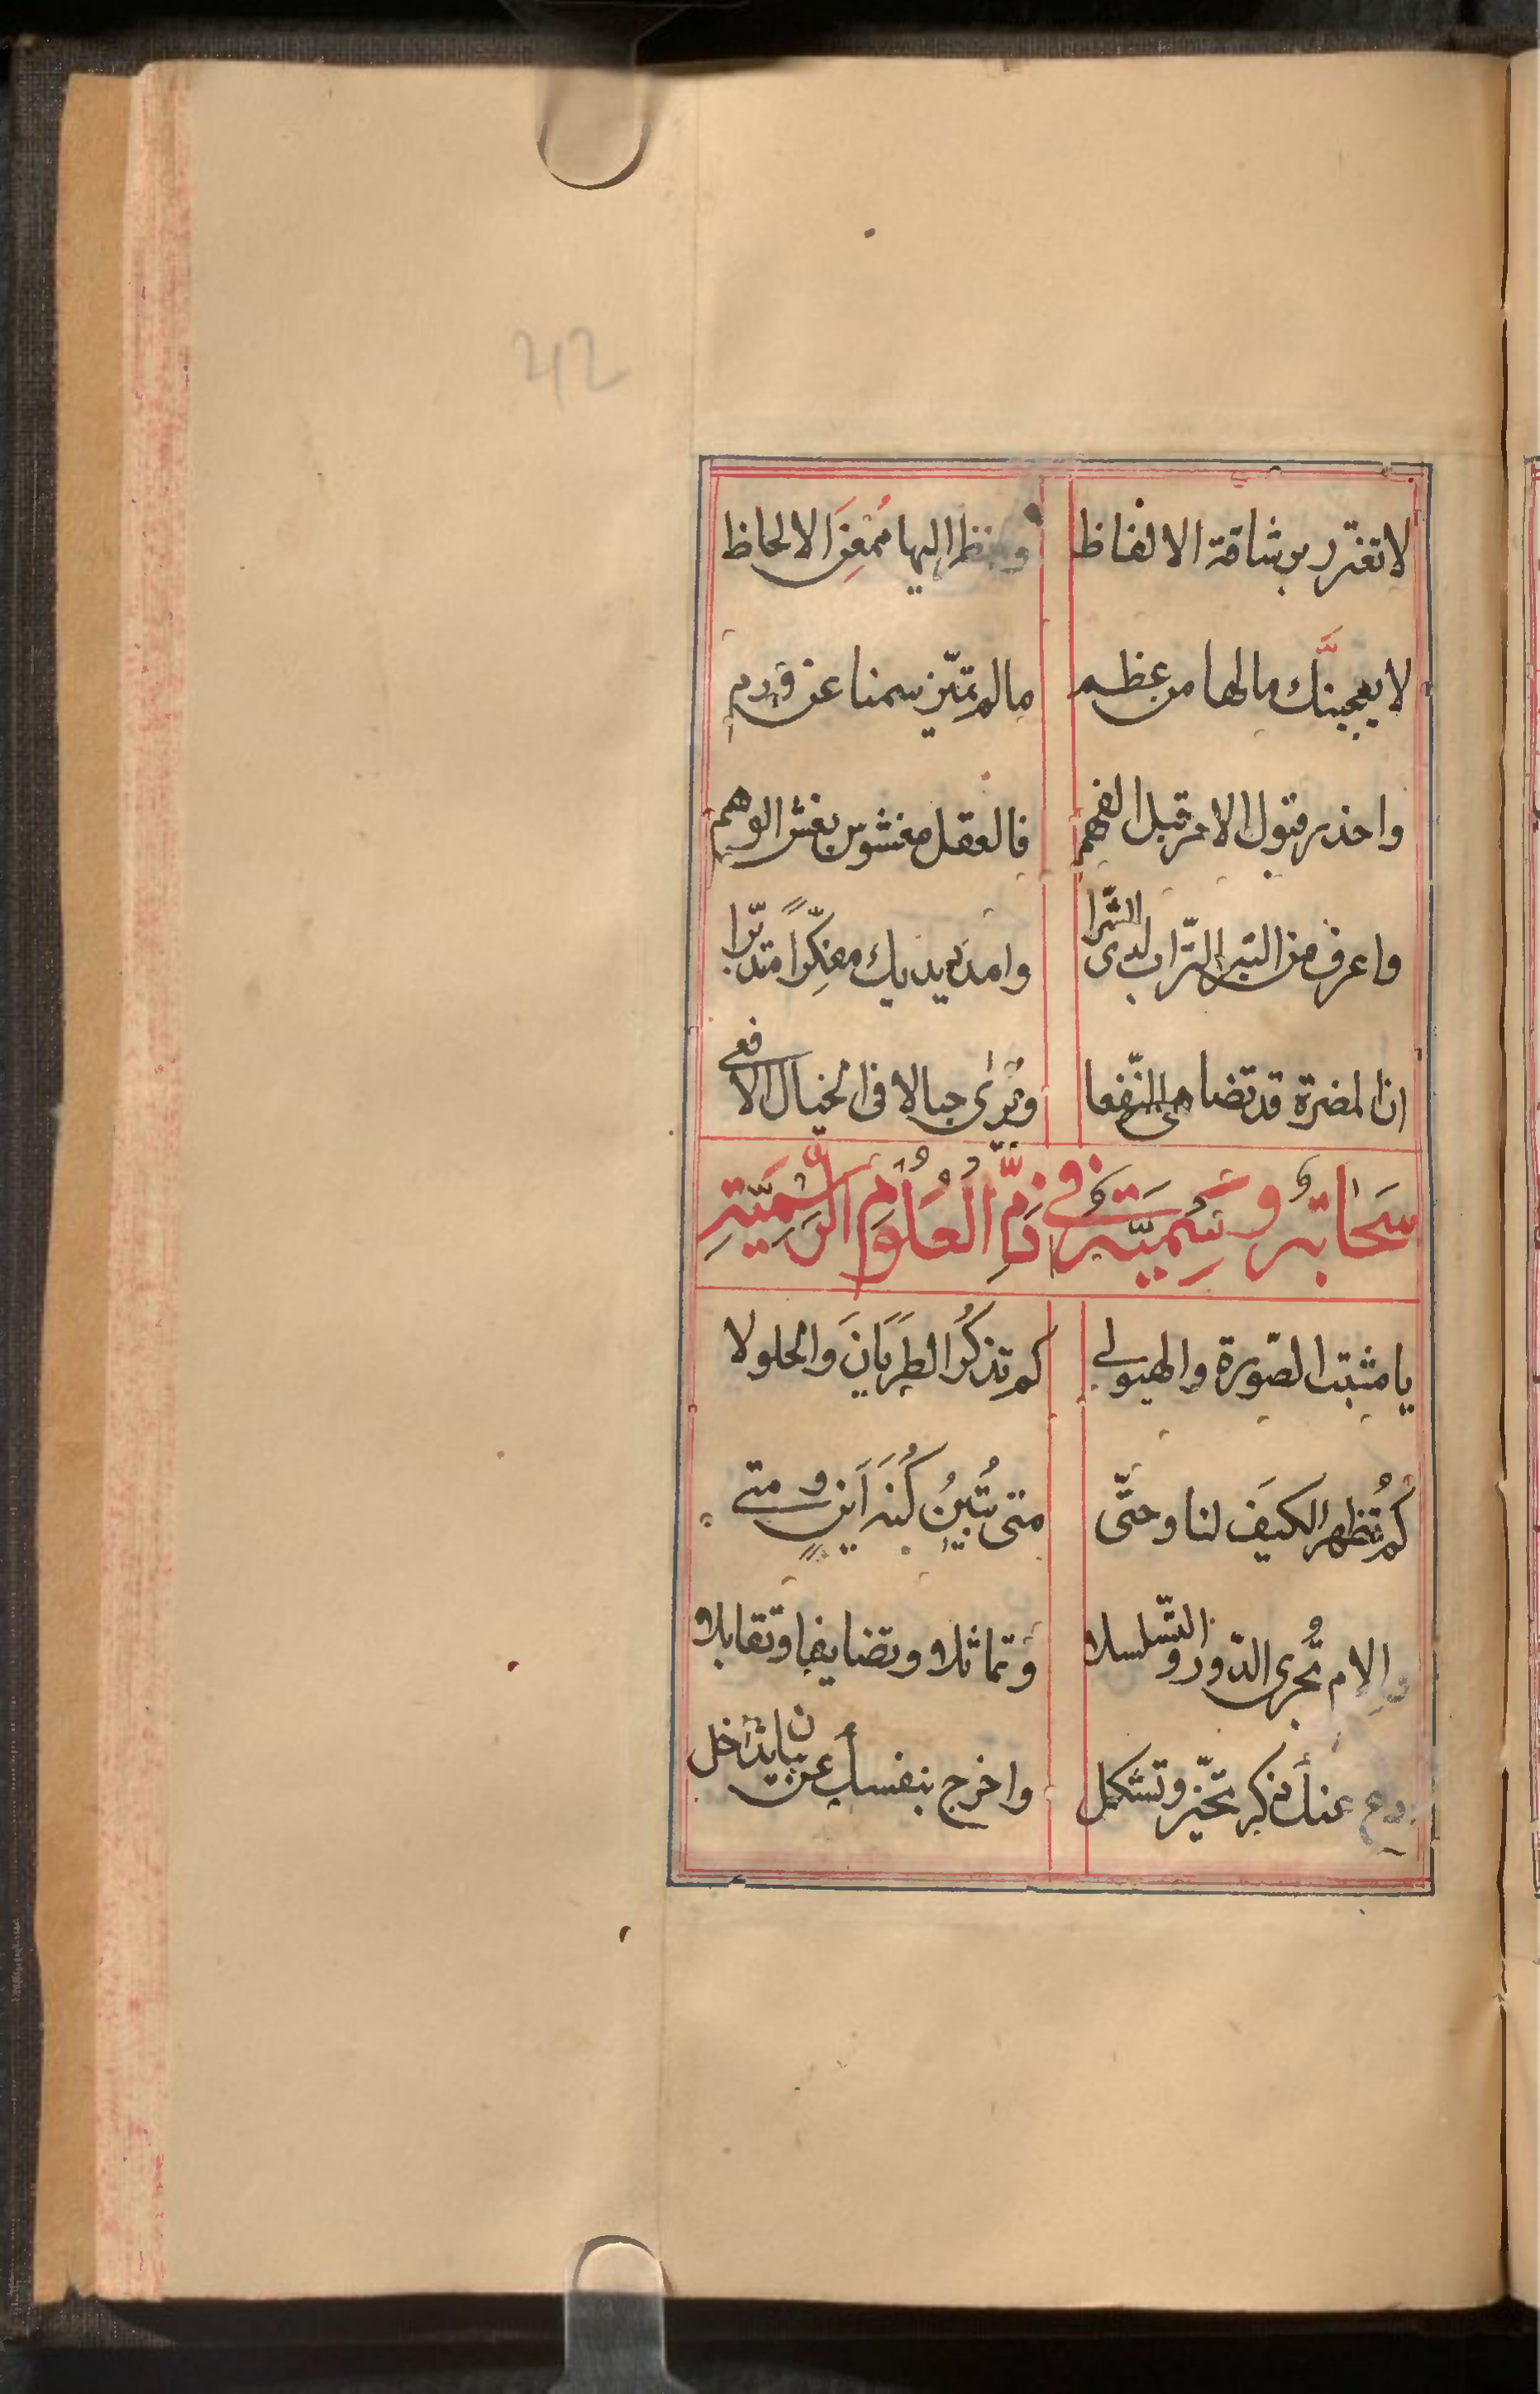 42
لا تغترر برشاقة الالفاظ وانظر اليها ممعن الالحاظ
لا يعجبنَّك مالها من عظم مالم تميّز سمنا عن ورم
واحذر قبول الامر قبل الفهم فالعقل مغشوش بغش الوهم
واعرف من التبر التّراب لدى الشّرا وامدد يديك مفكِّرًا متدبّرا
ان المضرة قد تضاهى النّفعا وتُرى حبالا فى الخيال الافعى
سَحَابَةٌ وَسْمِيَّةٌ فِي ذَمِّ الْعُلُومِ الرَّسْمِيَّةِ
يا مثبت الصّورة والهيولى كم تذكُرُ الطَرَيَانَ وَالحلولا
كم تُظهر الكيَف لنا وحتّى متى تُبينُ كُنهَ اَينٍ ومتى
والام تُجرى الدّور والتّسلسلا وَتماثلا وتضايفا وتقابلا
ودع عنك ذكر تحيّز وتشكل واخرج بنفسك عن بيان تداخل